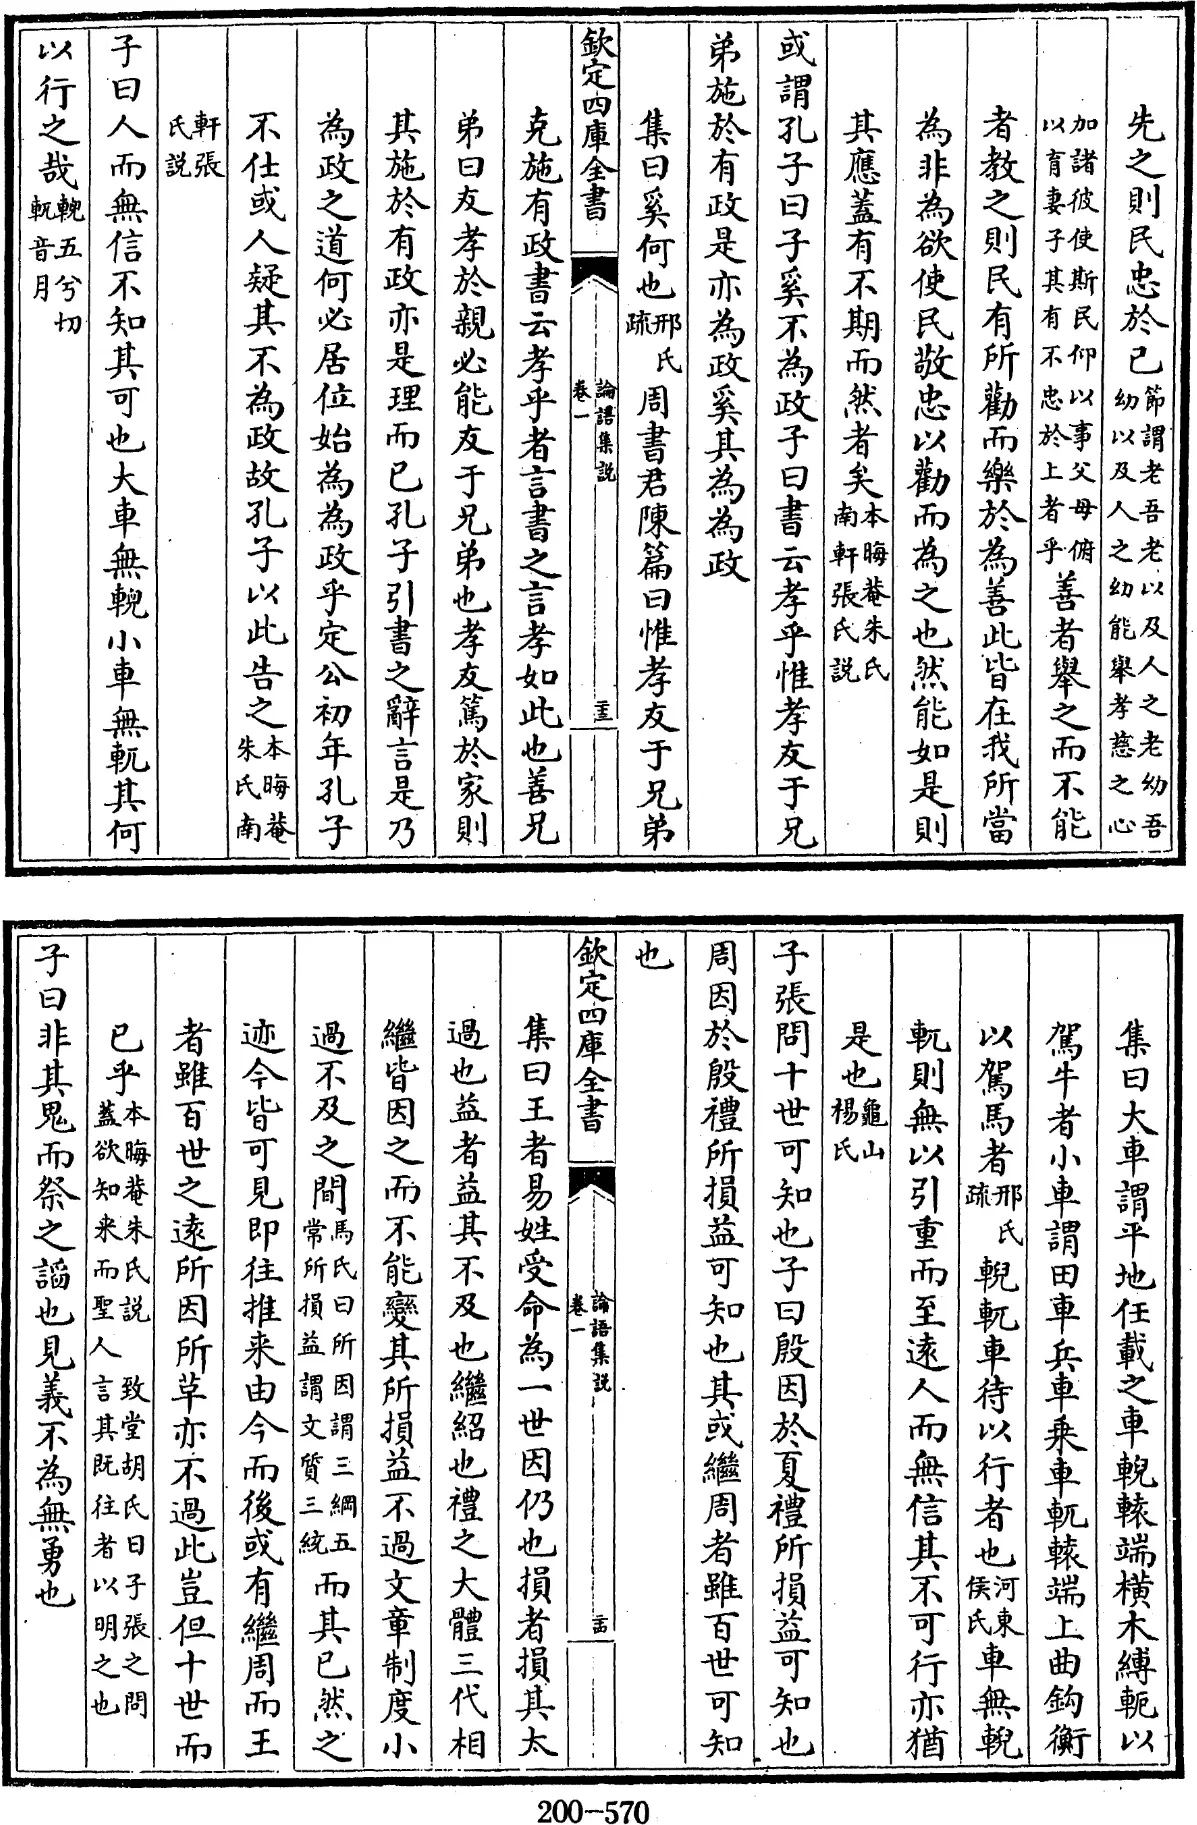 先之則民忠於已節謂老吾老以及人之老幼吾幼以及人之幼能舉孝慈之心
加諸彼使斯民仰以事父母俯以育妻子其有不忠於上者乎善者舉之而不能
者教之則民有所勸而樂於為善此皆在我所當
為非為欲使民敬忠以勸而為之也然能如是則
其應蓋有不期而然者矣本晦菴朱氏南軒張氏説
或謂孔子曰子奚不為政子曰書云孝乎惟孝友于兄
弟施於有政是亦為政奚其為為政
集曰奚何也邢氏疏周書君陳篇曰惟孝友于兄弟
欽定四庫全書 論語集説 卷一 二十三
克施有政書云孝乎者言書之言孝如此也善兄
弟曰友孝於親必能友于兄弟也孝友篤於家則
其施於有政亦是理而已孔子引書之辭言是乃
為政之道何必居位始為為政乎定公初年孔子
不仕或人疑其不為政故孔子以此告之本晦菴朱氏南
軒張氏説
子曰人而無信不知其可也大車無輗小車無軏其何
以行之哉輗五兮切軏音月
集曰大車謂平地任載之車輗轅端橫木縛軛以
駕牛者小車謂田車兵車乘車軏轅端上曲鈎衡
以駕馬者邢氏疏輗軏車待以行者也河東侯氏車無輗
軏則無以引重而至遠人而無信其不可行亦猶
是也龜山楊氏
子張問十世可知也子曰殷因於夏禮所損益可知也
周因於殷禮所損益可知也其或繼周者雖百世可知
也
欽定四庫全書 論語集説 卷一 二十四
集曰王者易姓受命為一世因仍也損者損其太
過也益者益其不及也繼紹也禮之大體三代相
繼皆因之而不能變其所損益不過文章制度小
過不及之間馬氏曰所因謂三綱五常所損益謂文質三統而其已然之
迹今皆可見即往推来由今而後或有繼周而王
者雖百世之遠所因所革亦不過此豈但十世而
已乎本晦菴朱氏説 致堂胡氏曰子張之問蓋欲知来而聖人言其既往者以明之也
子曰非其鬼而祭之諂也見義不為無勇也
200-570